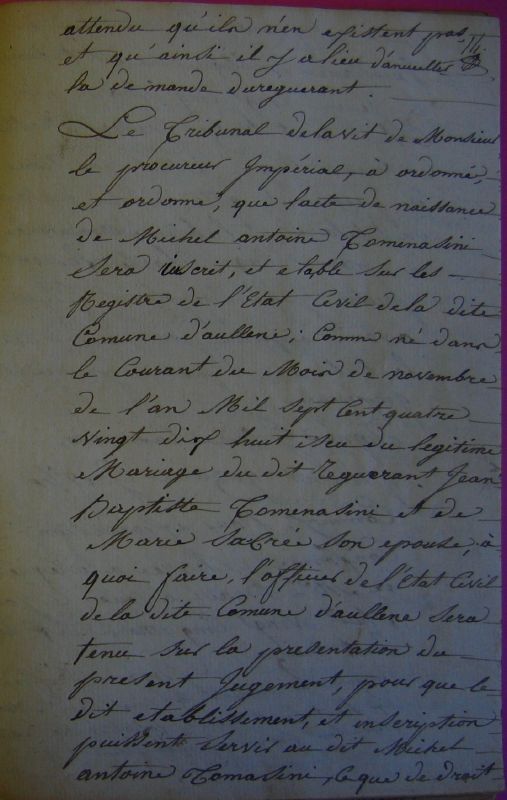 attendu qu'ils n'en existent pas,
et qu'ainsi il y a lieu d'anuellés
la demande du reguerant.
Le Tribunal de la vit de Monsieur
le procureur Impérial, à ordonné,
et ordonne, que l'acte de naissance
de Michel antoine Tomenasini
sera inscrit, et etable sur les
Registre de l'Etat Civil de la dite
Comune d'aullene; Comme né dans
le Courant du Mois de novembre
de l'an Mil Sept Cent quatre
vingt dix huit iseu du legitime
Mariage du dit reguerant Jean
Baptiste Tomenasini et de
Marie Sacrée Son epouse, à
quoi faire, l'officier de l'Etat Civil
de la dite Comune d'aullene Sera
tenu Sur la presentation du
present Jugement, pour que le
dit etablissement, et inscription
puissent Servir au dit Michel
antoine Tomasini, ce que de droit